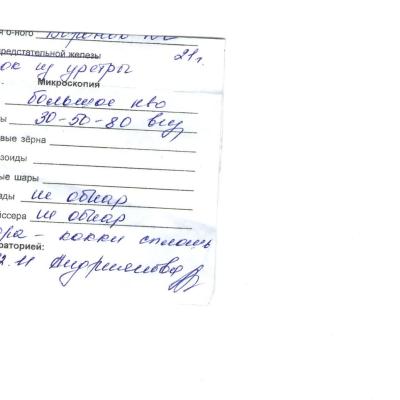 я о-ного
предстательной железы 21г.
ок из уретры
Микроскопия
большое кво
ы 30-50-80 в п/з
вые зёрна
зоиды
ые шары
ады не обнар
йссера не обнар
ора - кокки сплошь
раторией:
2.11 Андриянова